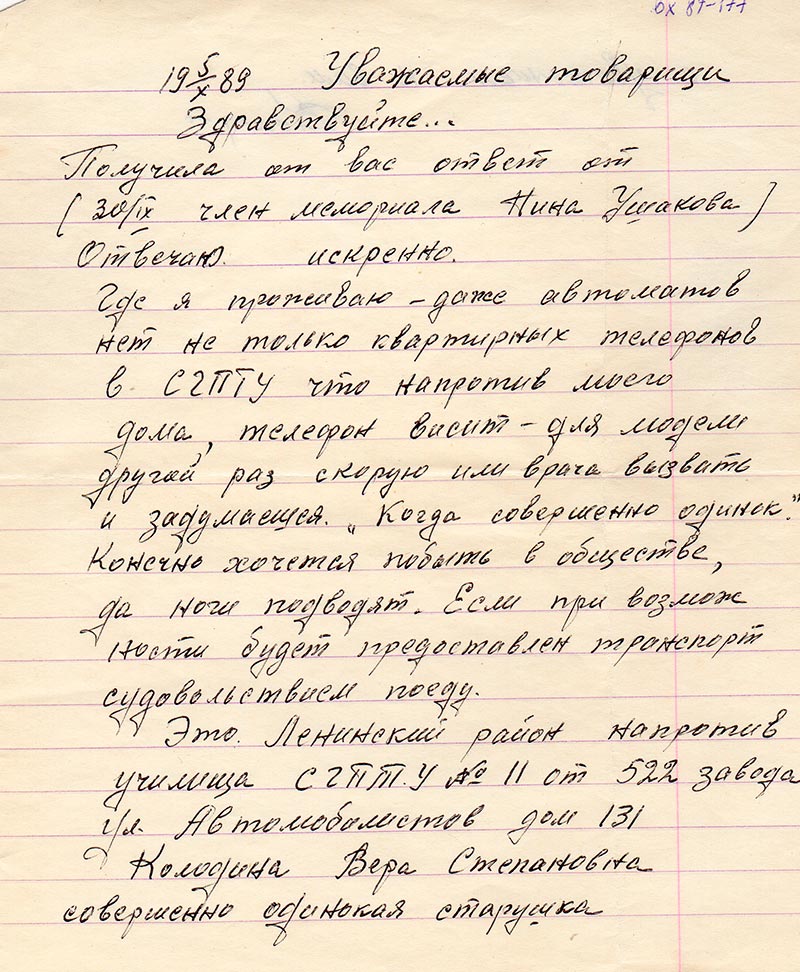 ОХ 89-177
19 5/X 89 Уважаемые товарищи
Здравствуйте...
Получила от вас ответ от
( 30/IX член мемориала Нина Ушакова )
Отвечаю. искренно.
Где я проживаю – даже автоматов
нет не только квартирных телефонов
в СГПТУ что напротив моего
дома, телефон висит – для модели
другой раз скорую или врача вызвать
и задумаешся. „Когда совершенно одинок."
Конечно хочется побыть в обществе,
да ноги подводят. Если при возмож
ности будет предоставлен транспорт
судовольствием поеду.
Это. Ленинский район напротив
училища СГПТ.У № 11 от 522 завода
ул. Автомобалистов дом 131
Колодина Вера Степановна
совершенно одинокая старушка